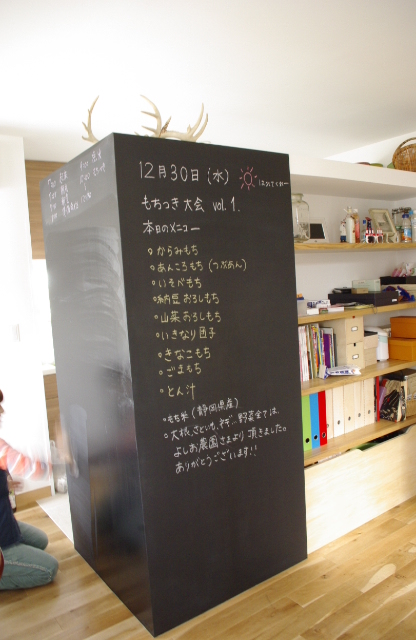 12月30日(水)
もちつき大会 vol.1.
本日のメニュー
◦からみもち
◦あんころもち(つぶあん)
◦いそべもち
◦納豆おろしもち
◦山菜おろしもち
◦いきなり団子
◦きなこもち
◦ごまもち
◦とん汁
◦もち米(静岡県産)
◦大根、さといも、ネギ… 野菜全ては、
よしお農園さまより頂きました。
ありがとうございます!!